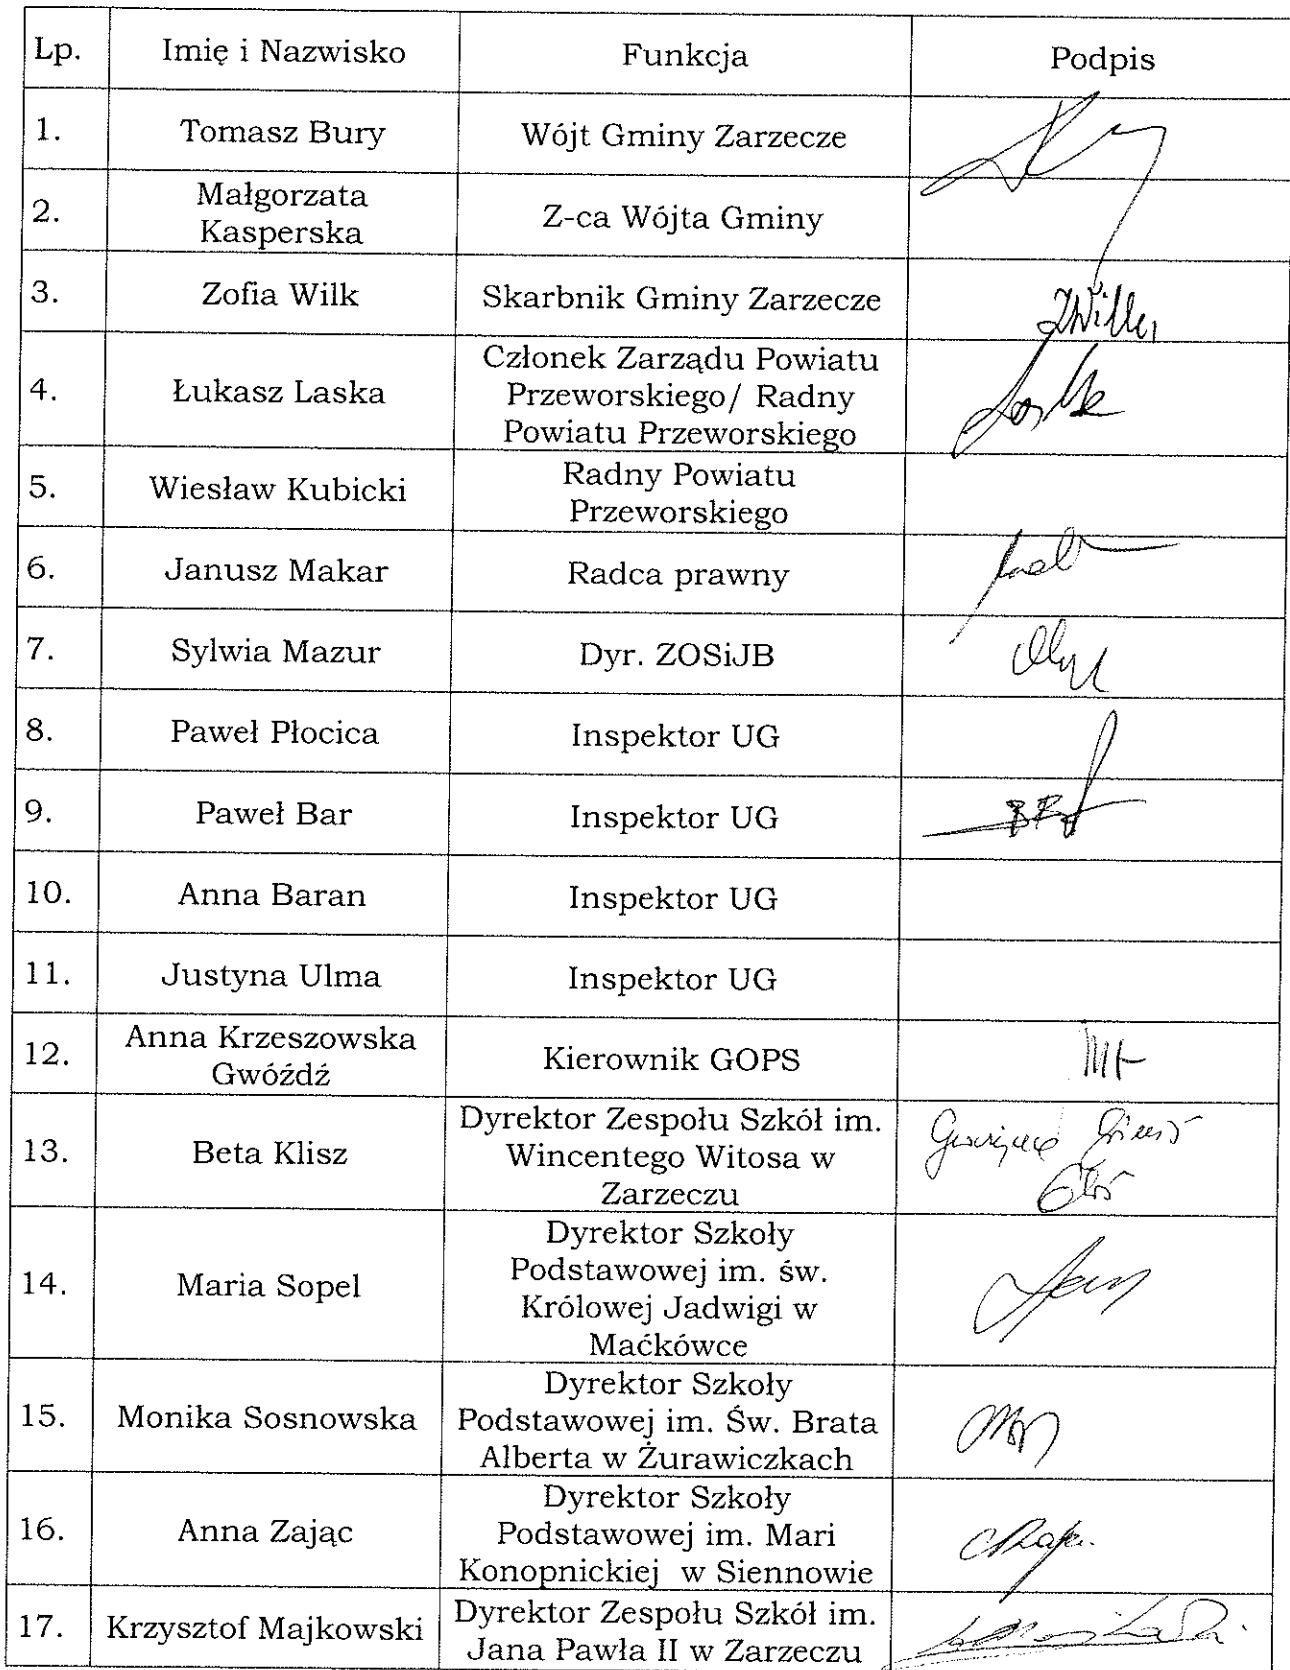 Lp. Imię i Nazwisko Funkcja Podpis
1. Tomasz Bury Wójt Gminy Zarzecze
2. Małgorzata
Kasperska Z-ca Wójta Gminy
3. Zofia Wilk Skarbnik Gminy Zarzecze ZWilk
4. Łukasz Laska Członek Zarządu Powiatu
Przeworskiego/ Radny
Powiatu Przeworskiego
5. Wiesław Kubicki Radny Powiatu
Przeworskiego
6. Janusz Makar Radca prawny
7. Sylwia Mazur Dyr. ZOSiJB
8. Paweł Płocica Inspektor UG
9. Paweł Bar Inspektor UG
10. Anna Baran Inspektor UG
11. Justyna Ulma Inspektor UG
12. Anna Krzeszowska
Gwóźdź Kierownik GOPS
13. Beta Klisz Dyrektor Zespołu Szkół im.
Wincentego Witosa w
Zarzeczu
14. Maria Sopel Dyrektor Szkoły
Podstawowej im. św.
Królowej Jadwigi w
Maćkówce
15. Monika Sosnowska Dyrektor Szkoły
Podstawowej im. Św. Brata
Alberta w Żurawiczkach
16. Anna Zając Dyrektor Szkoły
Podstawowej im. Mari
Konopnickiej w Siennowie
17. Krzysztof Majkowski Dyrektor Zespołu Szkół im.
Jana Pawła II w Zarzeczu